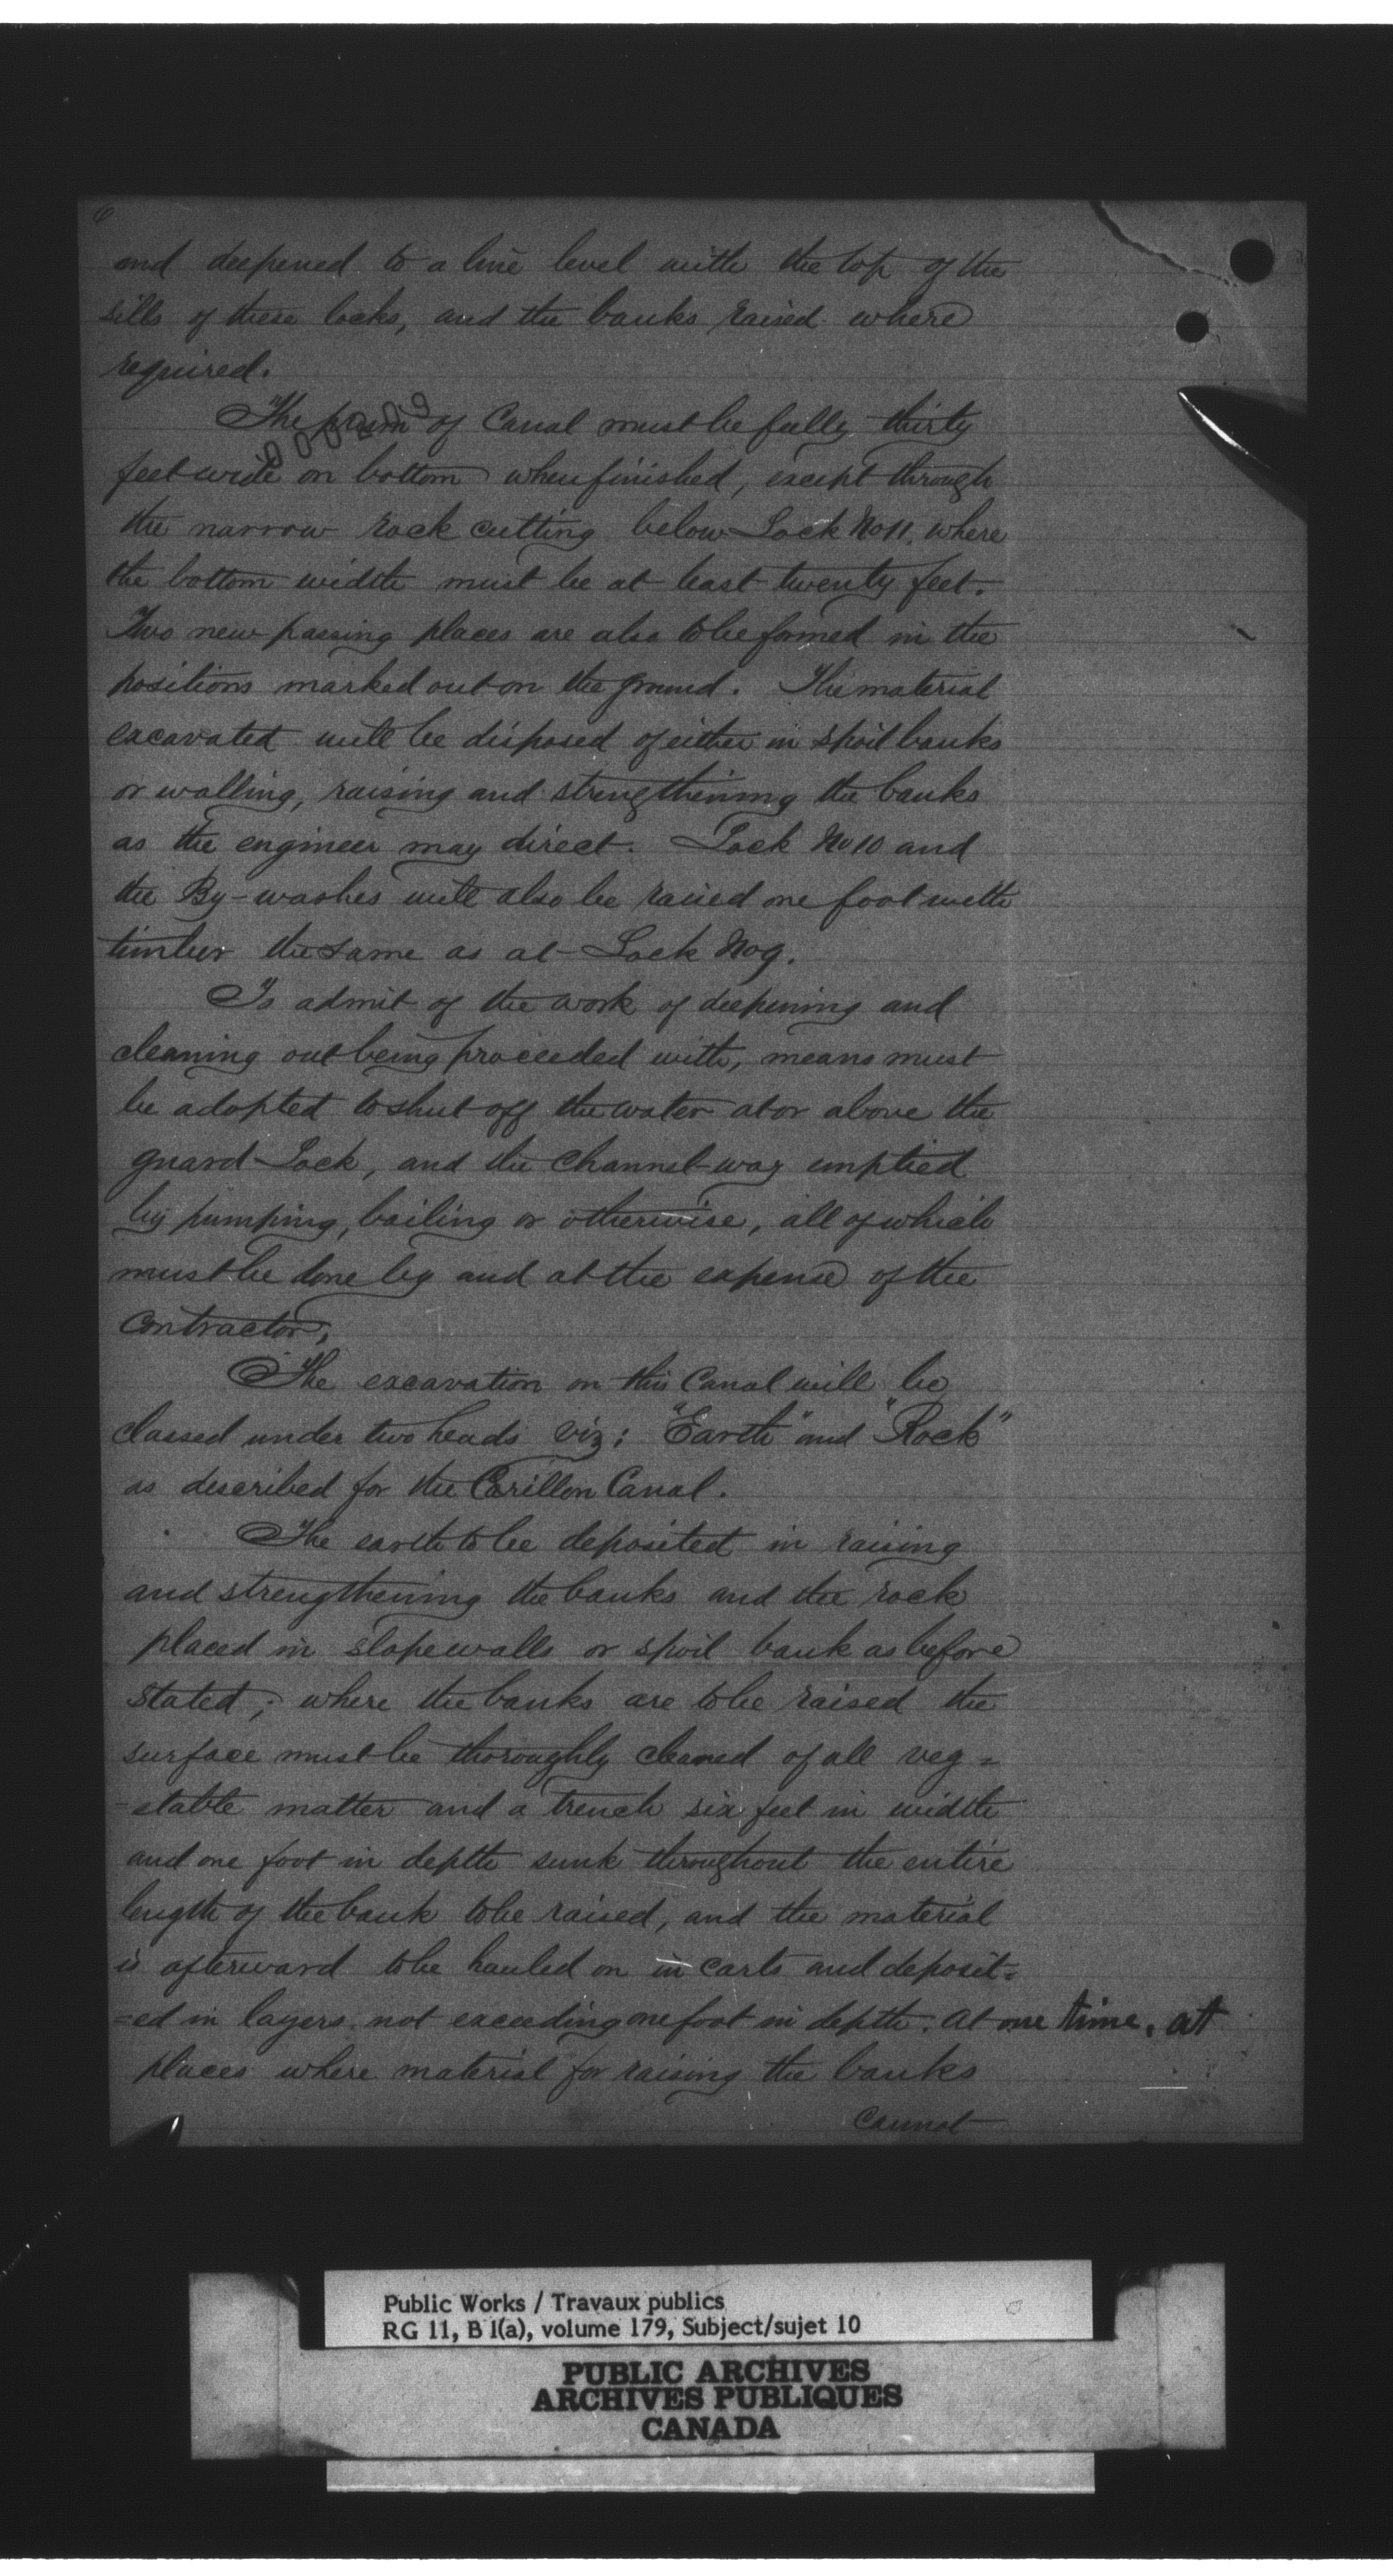 6
and deepened to a line level with the top of the
sills of these locks, and the banks raised where
required.
The prism of Canal must be fully thirty
feet wide on bottom when finished, except through
the narrow rock cutting below Lock No 11, where
the bottom width must be at least twenty feet.
Two new passing places are also to be formed in the
positions marked out on the ground. The material
excavated will be disposed of either in spoil banks
or walling, raising and strengthening the banks
as the engineer may direct. Lock No 10 and
the By-washes will also be raised one foot with
timber the same as at Lock No 9.
To admit of the work of deepening and
cleaning out being proceeded with, means must
be adopted to shut off the water at or above the
guard Lock, and the channel-way emptied
by pumping, bailing or otherwise, all of which
must be done by and at the expense of the
Contractor,
The excavation on this Canal will be
classed under two heads viz; "Earth" and "Rock"
as described for the Carillon Canal.
The earth to be deposited in raising
and strengthening the banks and the rock
placed in slope walls or spoil bank as before
stated; where the banks are to be raised the
surface must be thoroughly cleaned of all veg=
-etable matter and a trench six feet in width
and one foot in depth sunk throughout the entire
length of the bank to be raised, and the material
is afterward to be hauled on in carts and deposit=
=ed in layers not exceeding one foot in depth. At one time, at
places where material for raising the banks
Cannot
Public Works / Travaux publics
RG 11, B 1(a), volume 179, Subject/sujet 10
PUBLIC ARCHIVES
ARCHIVES PUBLIQUES
CANADA